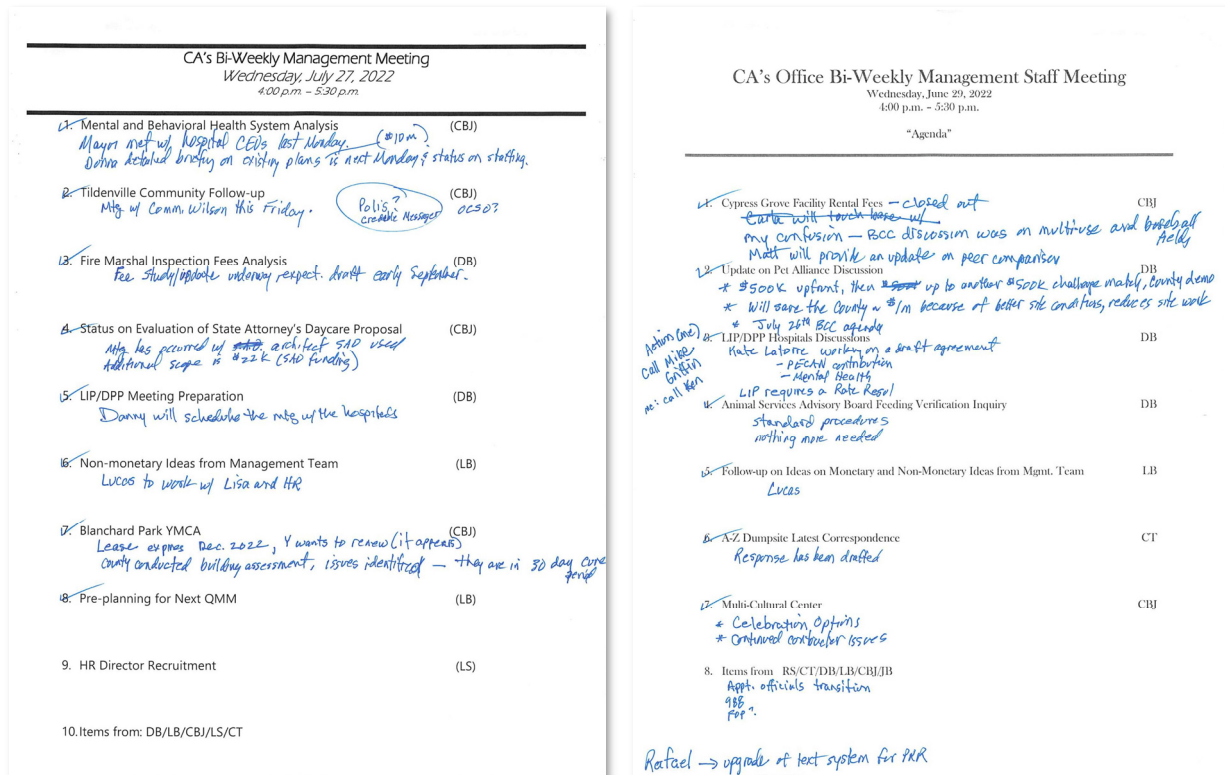 CA's Bi-Weekly Management Meeting
Wednesday, July 27, 2022
4:00 p.m. – 5:30 p.m.
1. Mental and Behavioral Health System Analysis (CBJ)
Mayor met w/ hospital CEOs last Monday. ($10m)
Donna detailed briefing on existing plans is next Monday & status on staffing.
2. Tildenville Community Follow-up (CBJ)
Mtg w/ Comm. Wilson this Friday. Polis? OCSO?
Credible Messages
3. Fire Marshal Inspection Fees Analysis (DB)
Fee study/update underway expect. draft early September.
4. Status on Evaluation of State Attorney's Daycare Proposal (CBJ)
Mtg has occurred w/ architect SAO used
Additional scope is $22K (SAO funding)
5. LIP/DPP Meeting Preparation (DB)
Danny will schedule the mtg w/ the hospitals
6. Non-monetary Ideas from Management Team (LB)
Lucas to work w/ Lisa and HR
7. Blanchard Park YMCA (CBJ)
Lease expires Dec. 2022, Y wants to renew (it appears)
County conducted building assessment, issues identified — they are in 30 day cure
period
8. Pre-planning for Next QMM (LB)
9. HR Director Recruitment (LS)
10. Items from: DB/LB/CBJ/LS/CT
CA's Office Bi-Weekly Management Staff Meeting
Wednesday, June 29, 2022
4:00 p.m. – 5:30 p.m.
"Agenda"
1. Cypress Grove Facility Rental Fees — closed out CBJ
Carla will touch base w/
my confusion — BCC discussion was on multiuse and baseball
fields
Matt will provide an update on peer comparison
2. Update on Pet Alliance Discussion DB
* $500K upfront, then up to another $500K challenge match, County demo
* Will save the County ~ $1m because of better site conditions, reduces site work
* July 26th BCC agenda
3. LIP/DPP Hospitals Discussions DB
Kate Latorre working on a draft agreement
- PECAN contribution
- Mental Health
LIP requires a Rate Resol
Action (me)
Call Mike
Griffin
me: call Ken
4. Animal Services Advisory Board Feeding Verification Inquiry DB
standard procedures
nothing more needed
5. Follow-up on Ideas on Monetary and Non-Monetary Ideas from Mgmt. Team LB
Lucas
6. A-Z Dumpsite Latest Correspondence CT
Response has been drafted
7. Multi-Cultural Center CBJ
* Celebration Options
* Continued contractor issues
8. Items from RS/CT/DB/LB/CBJ/JB
Appt. officials transition
988
FOP?
Rafael → upgrade of text system for PRR